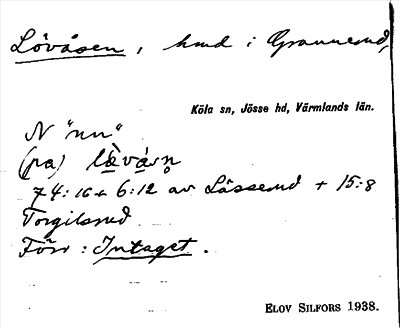 Lövåsen, hmd i Grannerud,
Köla sn, Jösse hd, Värmlands län.
N "nn"
(pa) lǜvásn̥
74:16+6:12 av Lässerud + 15:8
Torgilsrud
Förr: Intaget.
ELOV SILFORS 1938.